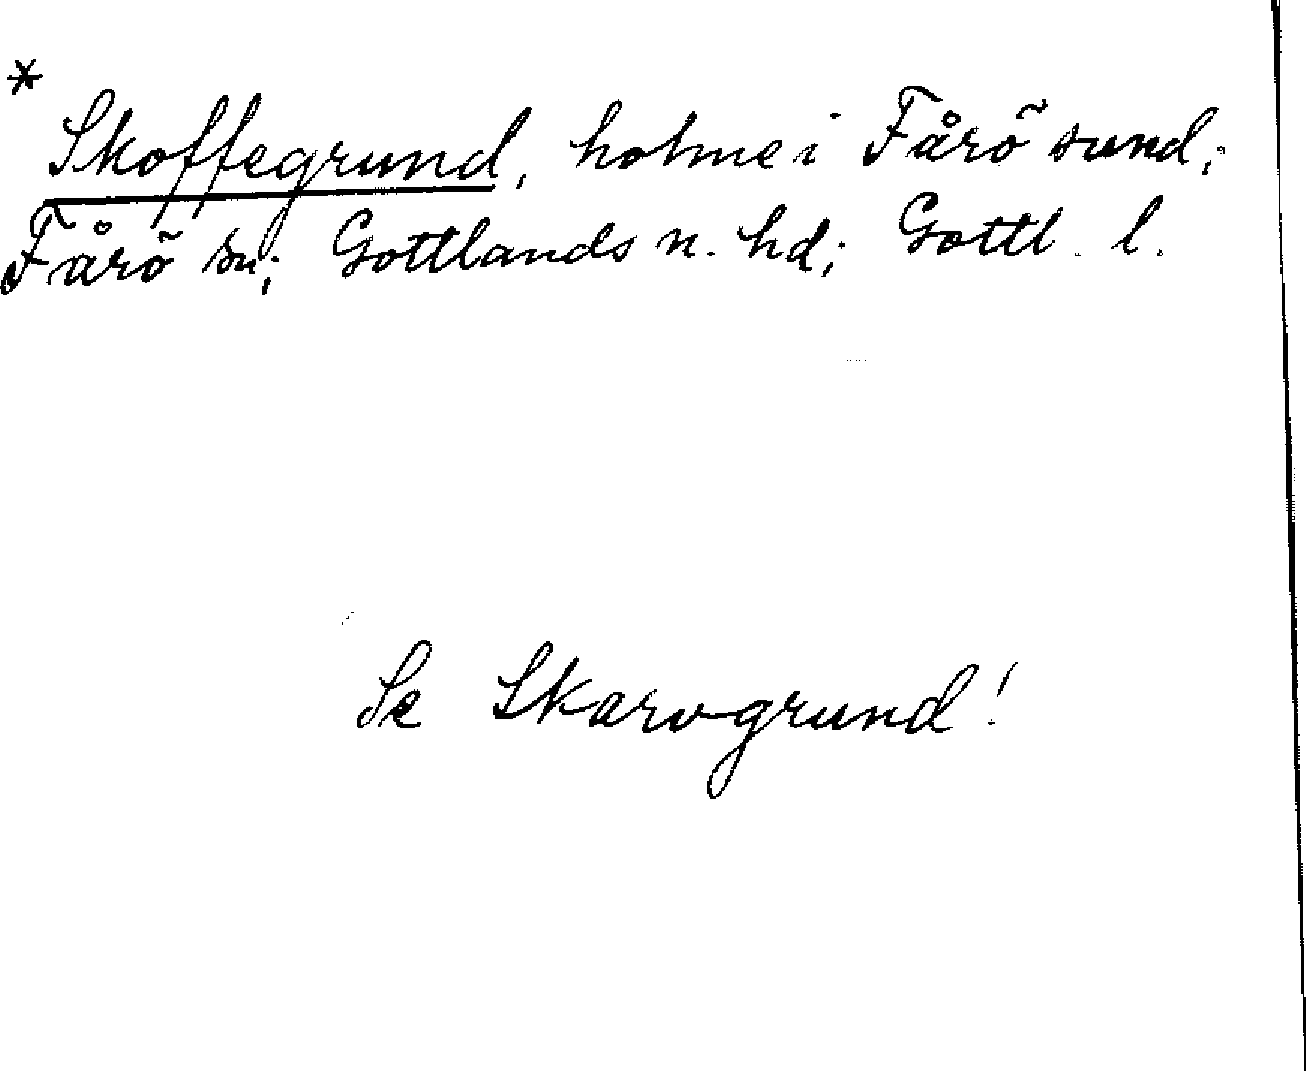 *
Skoffegrund, holme i Fårö sund;
Fårö sn; Gottlands n. hd; Gottl. l.
Se Skarvgrund!